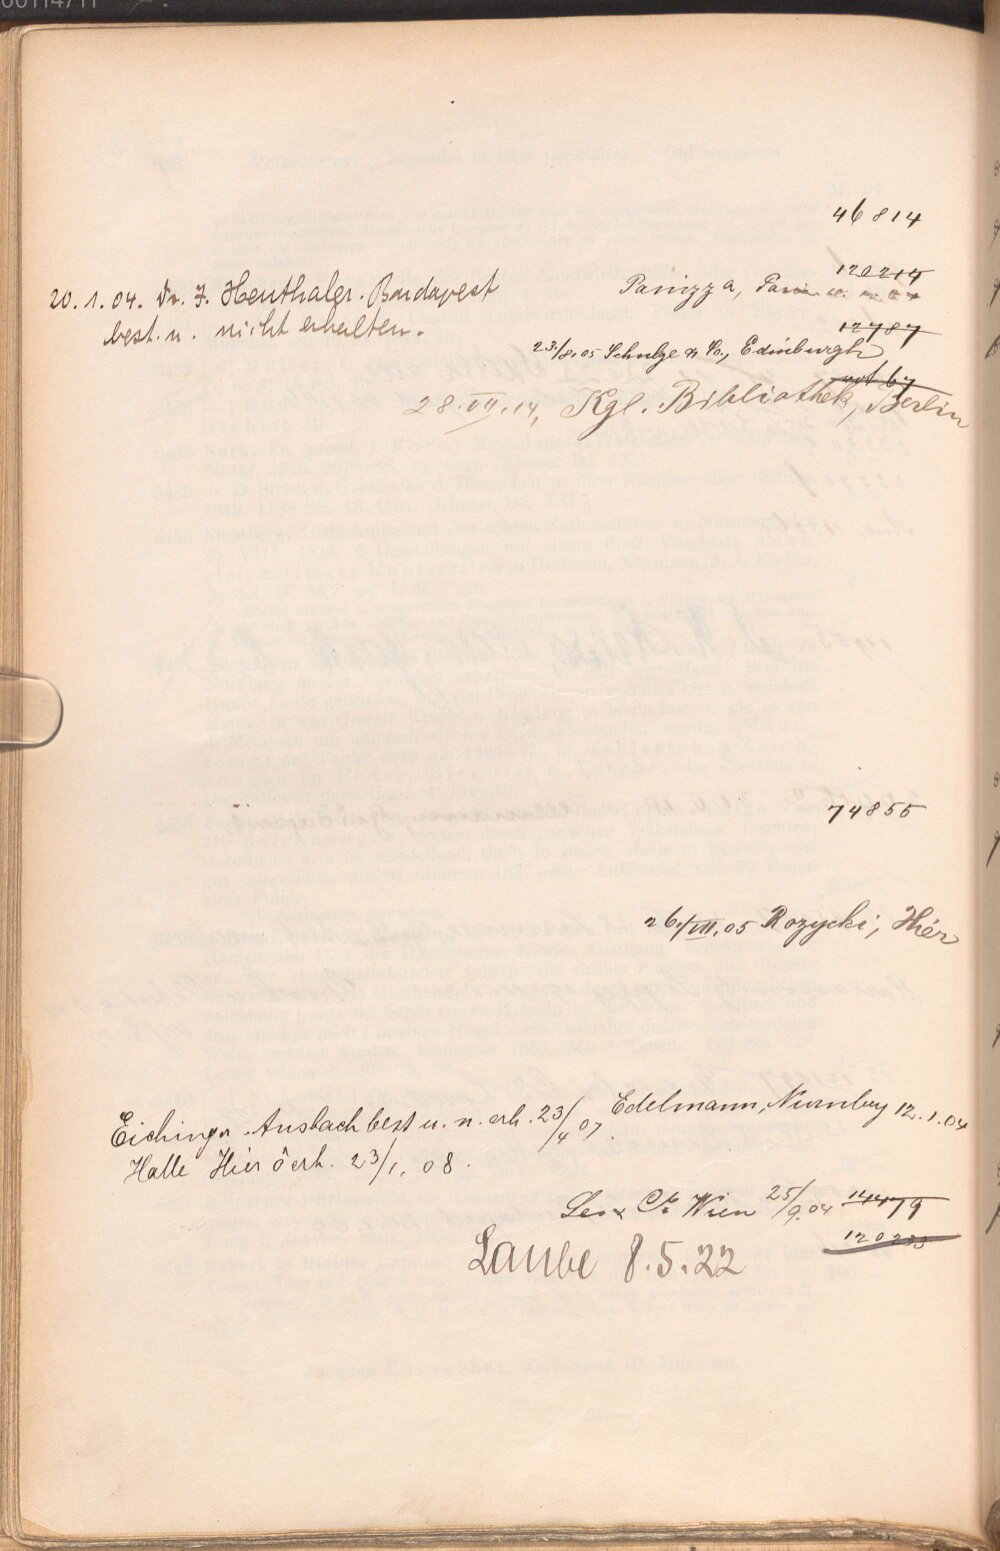 00114711
46814
120214
20.1.04. Dr. J. Henthaler. Budapest
Panizza,
best. u. nicht erhalten.
12787
23/8.05 Schulze & Co., Edinburgh
28.VII.14, Kgl. Bibliothek, Berlin
74855
26/VIII.05 Rozycki, Hier
Edelmann, Nürnberg 12.1.04
Eichinger. Ansbach best u. n. erh. 23/4 07.
Halle Hier ö erh. 23/1. 08.
Wien 25/9.04 14479
120233
Laube 8.5.22